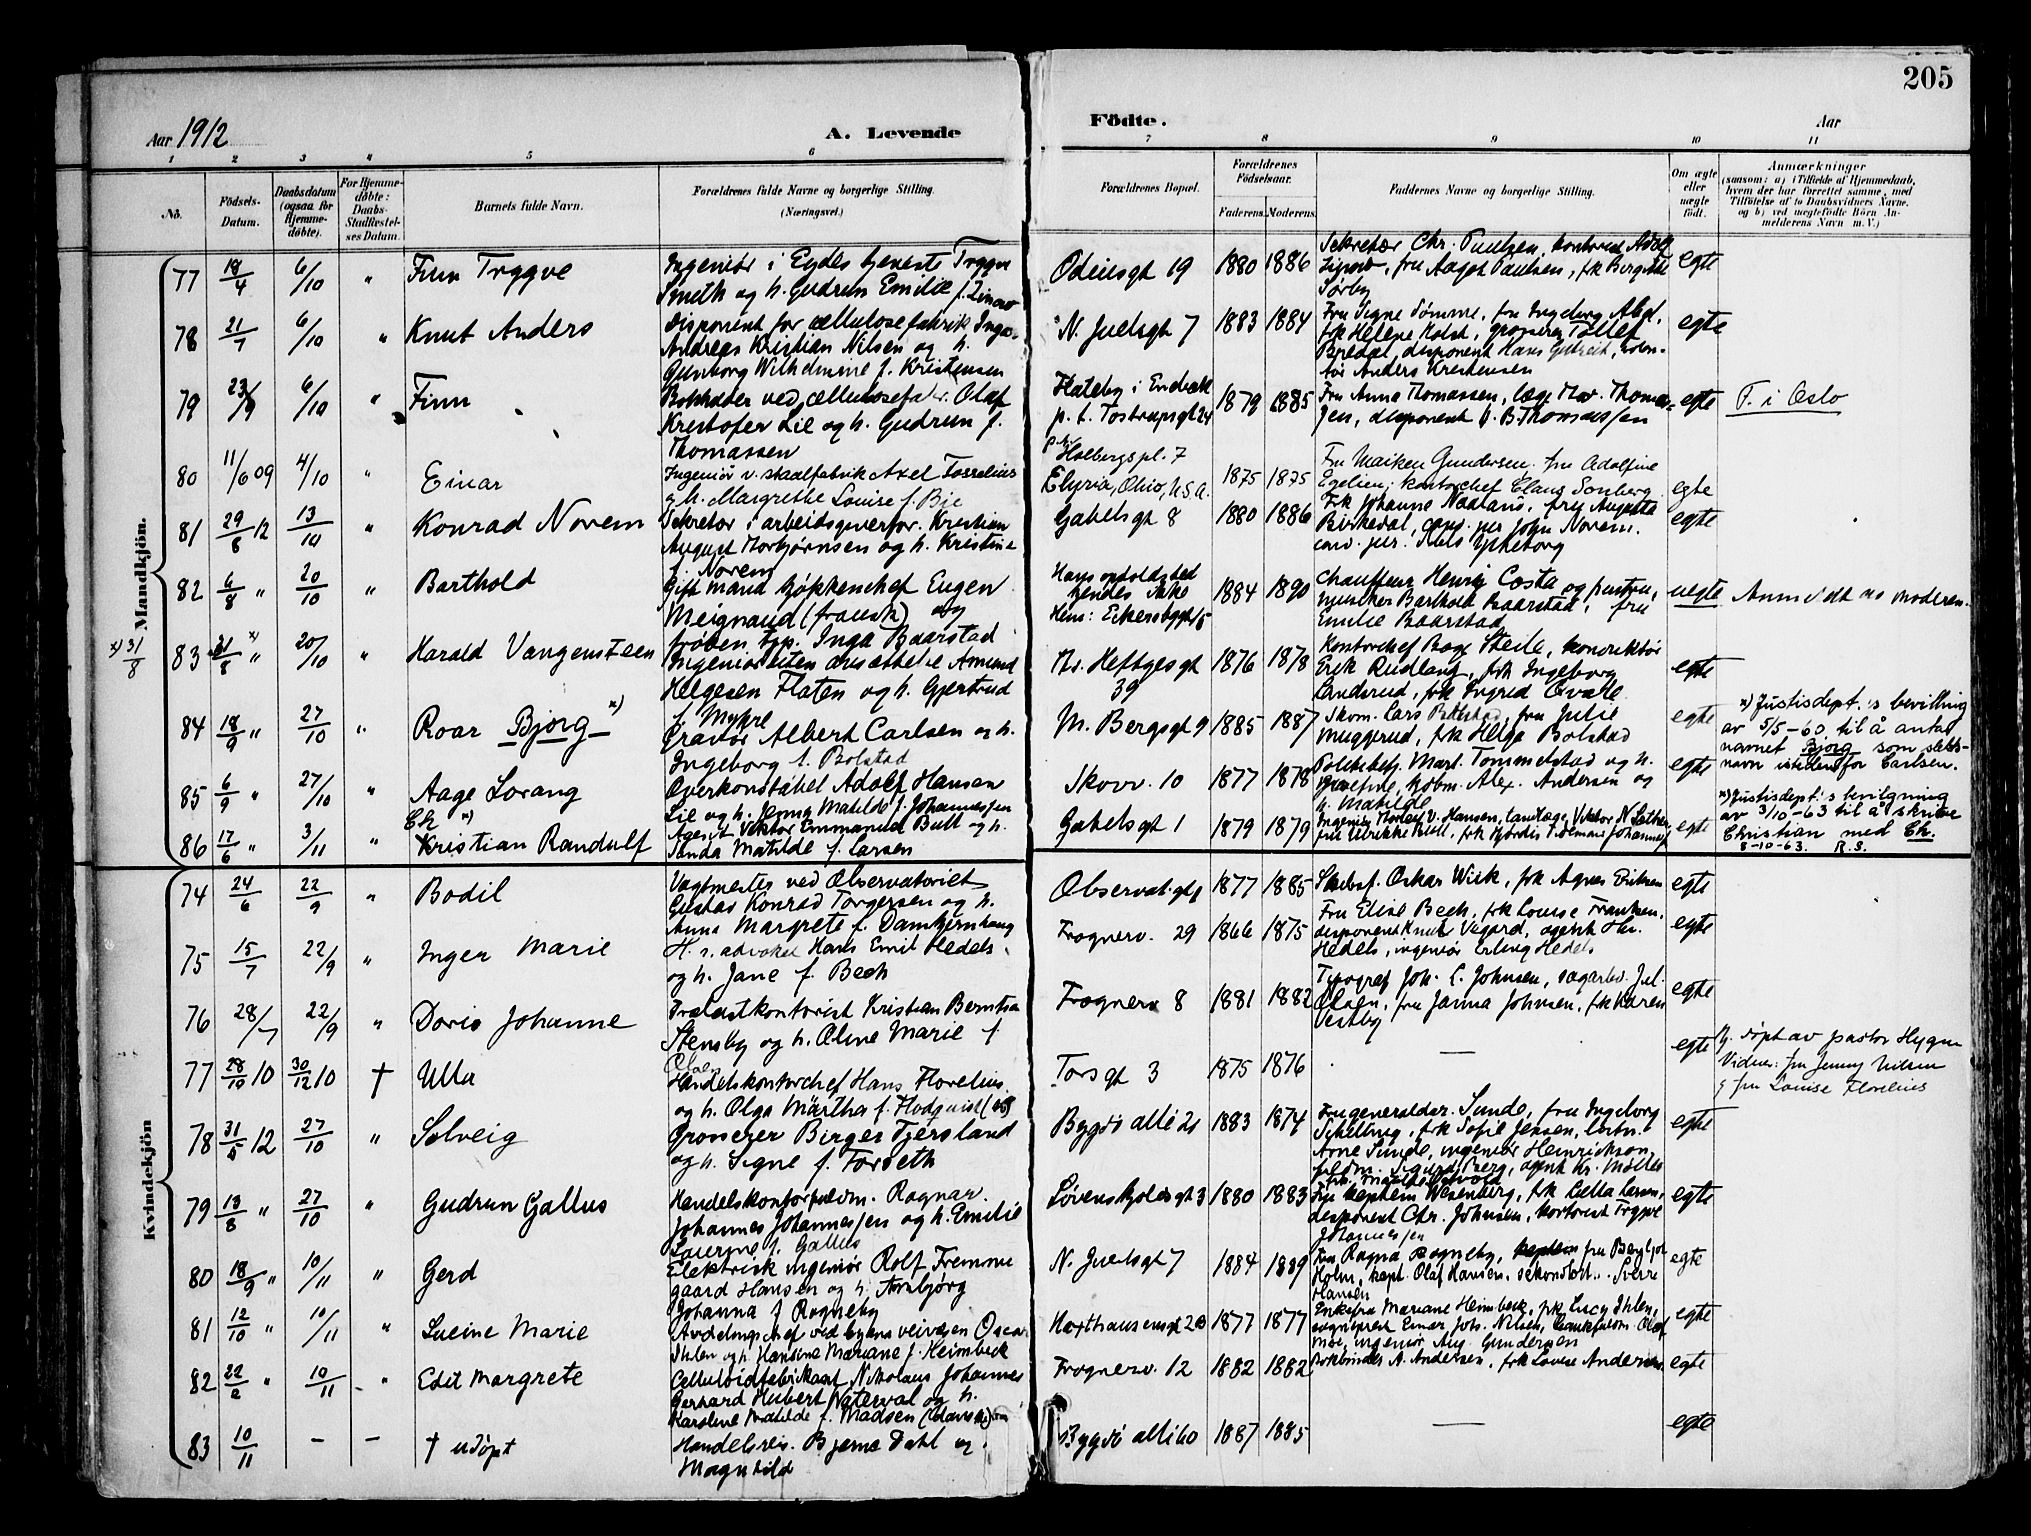 205
Aar 1912
A. Levende
Födte.
Aar
1 2 3 4 5 6 7 8 9 10 11
No.
Födsels-Datum.
Daabsdatum (ogsaa for Hjemme-döbte).
For Hjemme-döbte: Daabs-Stadfæstel-ses Datum.
Barnets fulde Navn.
Forældrenes fulde Navne og borgerlige Stilling.
(Næringsvei.)
Forældrenes Bopæl.
Forældrenes Födselsaar.
Faderens. Moderens.
Faddernes Navne og borgerlige Stilling.
Om ægte eller uægte födt.
Anmærkninger
(saasom: a) i Tilfælde af Hjemmedaab,
hvem der har forrettet samme, med
Tilföielse af to Daabsvidners Navne.
og b) ved uægtefödte Börn An-
melderens Navn m. V.)
Mandkjön.
77 18/4 6/10 " Finn Tryggve
Ingeniør i Eydes tjeneste Trygve
Smeth og h. Gudrun Emilie f.
Odinsgt 19 1880 1886
Sekretær Chr. Paulsen,
fru Aagot Paulsen, frk
Sørby
egte
78 21/7 6/10 " Knut Anders
Disponent for cellulosefabrik
Andreas Kristian Nilsen og h.
Gunborg Wilhelmine f. Kristensen
N. Juelsgt 7 1883 1884
Fru Signe Sømme, fru Ingeborg
frk Helene Holst, grosserer
Bredal, disponent Hans
Anders Kristensen
egte
79 23/9 6/10 " Finn
Bokholder ved cellulosefabr. Olaf
Kristofer Lie og h. Gudrun f.
Thomassen
Flateby i Enebak
p. t. Tostrupsgt 24
1879 1885
Fru Anna Thomassen, læge Thor. Thomas-
sen, disponent B. Thomassen
egte
T. i Oslo
80 11/6 09 4/10 " Einar
Ingeniør v. staalfabrik Axel
og h. Margrethe Louise f. Bje
Holbergs pl. 7
Elyria, Ohio, U.S.A.
1875 1875
Fru Maiken Gundersen, fru Adolfine
kontorchef Claus Sonberg
egte
81 29/8 12 13/10 " Konrad Norem
Sekretær i arbeidsgiverfor. Kristian
August Torbjørnsen og h. Kristine
f. Norem
Gabelsgt 8 1880 1886
Frk Johanne fru Augusta
Birkedal, cand. jur John Norem.
cand. jur.
egte
82 6/8 " 20/10 " Barthold
Gift mand kjøkkenchef Eugen
Meignaud (fransk) og
frøken Inga Baarstad
Hans opholdssted
kjendes ikke
Hens: Eckersbergsgt 15
1884 1890
Chauffeur Henrij Costa og hustru,
musiker Barthold Baarstad, fru
Emilie Baarstad
uegte
Anmeldt av moderen.
x) 31/8
83 31/8 x) " 20/10 " Harald Vangensteen
Ingeniør Amund
Helgesen Flaten og h. Gjertrud
f. Mykre
Th. Heftyesgt
39
1876 1878
Kontorchef Steile, konduktør
Erik Rudlang, frk Ingeborg
Landsrud, frk Ingrid
egte
84 18/9 " 27/10 " Roar Bjorg x)
Gravør Albert Carlsen og h.
Ingeborg f. Bolstad
M. Bergsgt 9 1885 1887
Skom. Lars fru Julie
Muggerud, frk Helga Bolstad
egte
x) Justisdept.s bevilling
av 5/5-60 til å anta
navnet Bjorg som slekts-
navn istedenfor Carlsen.
85 6/9 " 27/10 " Aage Lorang
Overkonstabel Adolf Hansen
Lie og h. Jenny Matilde f. Johannessen
Skovv. 10 1877 1878
Politibetj. Mart. Tommelstad og h.
Josefine, kjøbm. Alex. Andersen og
h. Matilde
egte
Ch x)
86 17/6 " 3/11 " Kristian Randulf
Agent Viktor Emmanuel Bull og h.
Matilde f. Larsen
Gabelsgt 1 1879 1879
Ingeniør v. Hansen, landlæge Viktor
fru Ulrikke Bull, frk Hjørdis
egte
x) Justisdept.s bevilgning
av 3/10-63 til å skrive
Christian med Ch.
8-10-63. R.S.
Kvindekjön
74 24/6 22/9 " Bodil
Vagtmester ved Observatoriet
Gustav Konrad Torgersen og h.
Anna Margrete f.
Observat.gt 1877 1885
Skibsf. Oskar Wiik, frk Agnes Eriksen
egte
75 15/7 22/9 " Inger Marie
H. r. advokat Hans Emil Hedels
og h. Jane f. Bech
Frognerv. 29 1866 1875
Fru Elise Bech, frk Louise Frantzen,
disponent Knut Vegard, agent Hr.
Hedels, ingeniør Erling Hedels
egte
76 28/7 22/9 " Doris Johanne
Kristian Berntsen
Stensby og h. Oline Marie f.
Olsen
Frognerv 8 1881 1882
Typograf Joh. C. Johnsen, sagarb. Jul.
Olsen, fru Janna Johnsen, frk Karen
Vestby
egte
77 28/10 10 30/12 10 † Ulla
Handelskontorchef Hans Florelius
og h. Olga Märtha f.
Torsgt 3 1875 1876 —
egte
Hj. døpt av pastor Hygen
Vidner: fru Jenny Nilsen
& fru Louise Florelius
78 31/5 12 27/10 " Solveig
Grosserer Birger Tjersland
og h. Signe f. Forseth
Bygdø allé 21 1883 1874
Sunde, fru Ingeborg
frk Sofie Jensen,
Arne Sunde, ingeniør Heinrichson,
Sigurd Berg, agent Kr.
egte
79 13/8 " 27/10 " Gudrun Gallus
Ragnar
Johannes Johannessen og h. Emilie
f. Gallus
Løvenskjoldsgt 3 1880 1883
Fru kaptein Wesenberg, frk Lalla Larsen,
disponent Chr. Johnsen, kontorist Trygve
Johannessen
egte
80 18/9 " 10/11 " Gerd
Elektrisk ingeniør Rolf Fremme
gaard Hansen og h. Annbjørg
Johanna f. Rogneby
N. Juelsgt 7 1884 1889
Fru Ragna Rogneby, fru Bergljot
Holm, kapt. Olaf Hansen, sekondløit. Sverre
Hansen
egte
81 12/10 " 10/11 " Lucine Marie
Avdelingschef ved byens veivæsen Oscar
Ihlen og h. Hansine Mariane f. Heimbeck
Haxthausensgt 20 1877 1877
Enkefru Mariane Heimbeck, frk Lucy Ihlen,
sogneprest Einar Joh. Nilsen, Olaf
Moe, ingeniør Aug. Gundersen
egte
82 22/2 " 10/11 " Edit Margrete
Celluloidfabrikant Nikolaus Johannes
Gerhard Hubert Naterval og h.
Karoline Matilde f. Madsen
Frognerv. 12 1882 1882
Bokbinder A. Andersen, frk Lovise Andersen
egte
83 10/11 — — † udøpt
Handelsreis. Bjarne Dahl og
Magnhild
Bygdø allé 60 1887 1885 —
egte